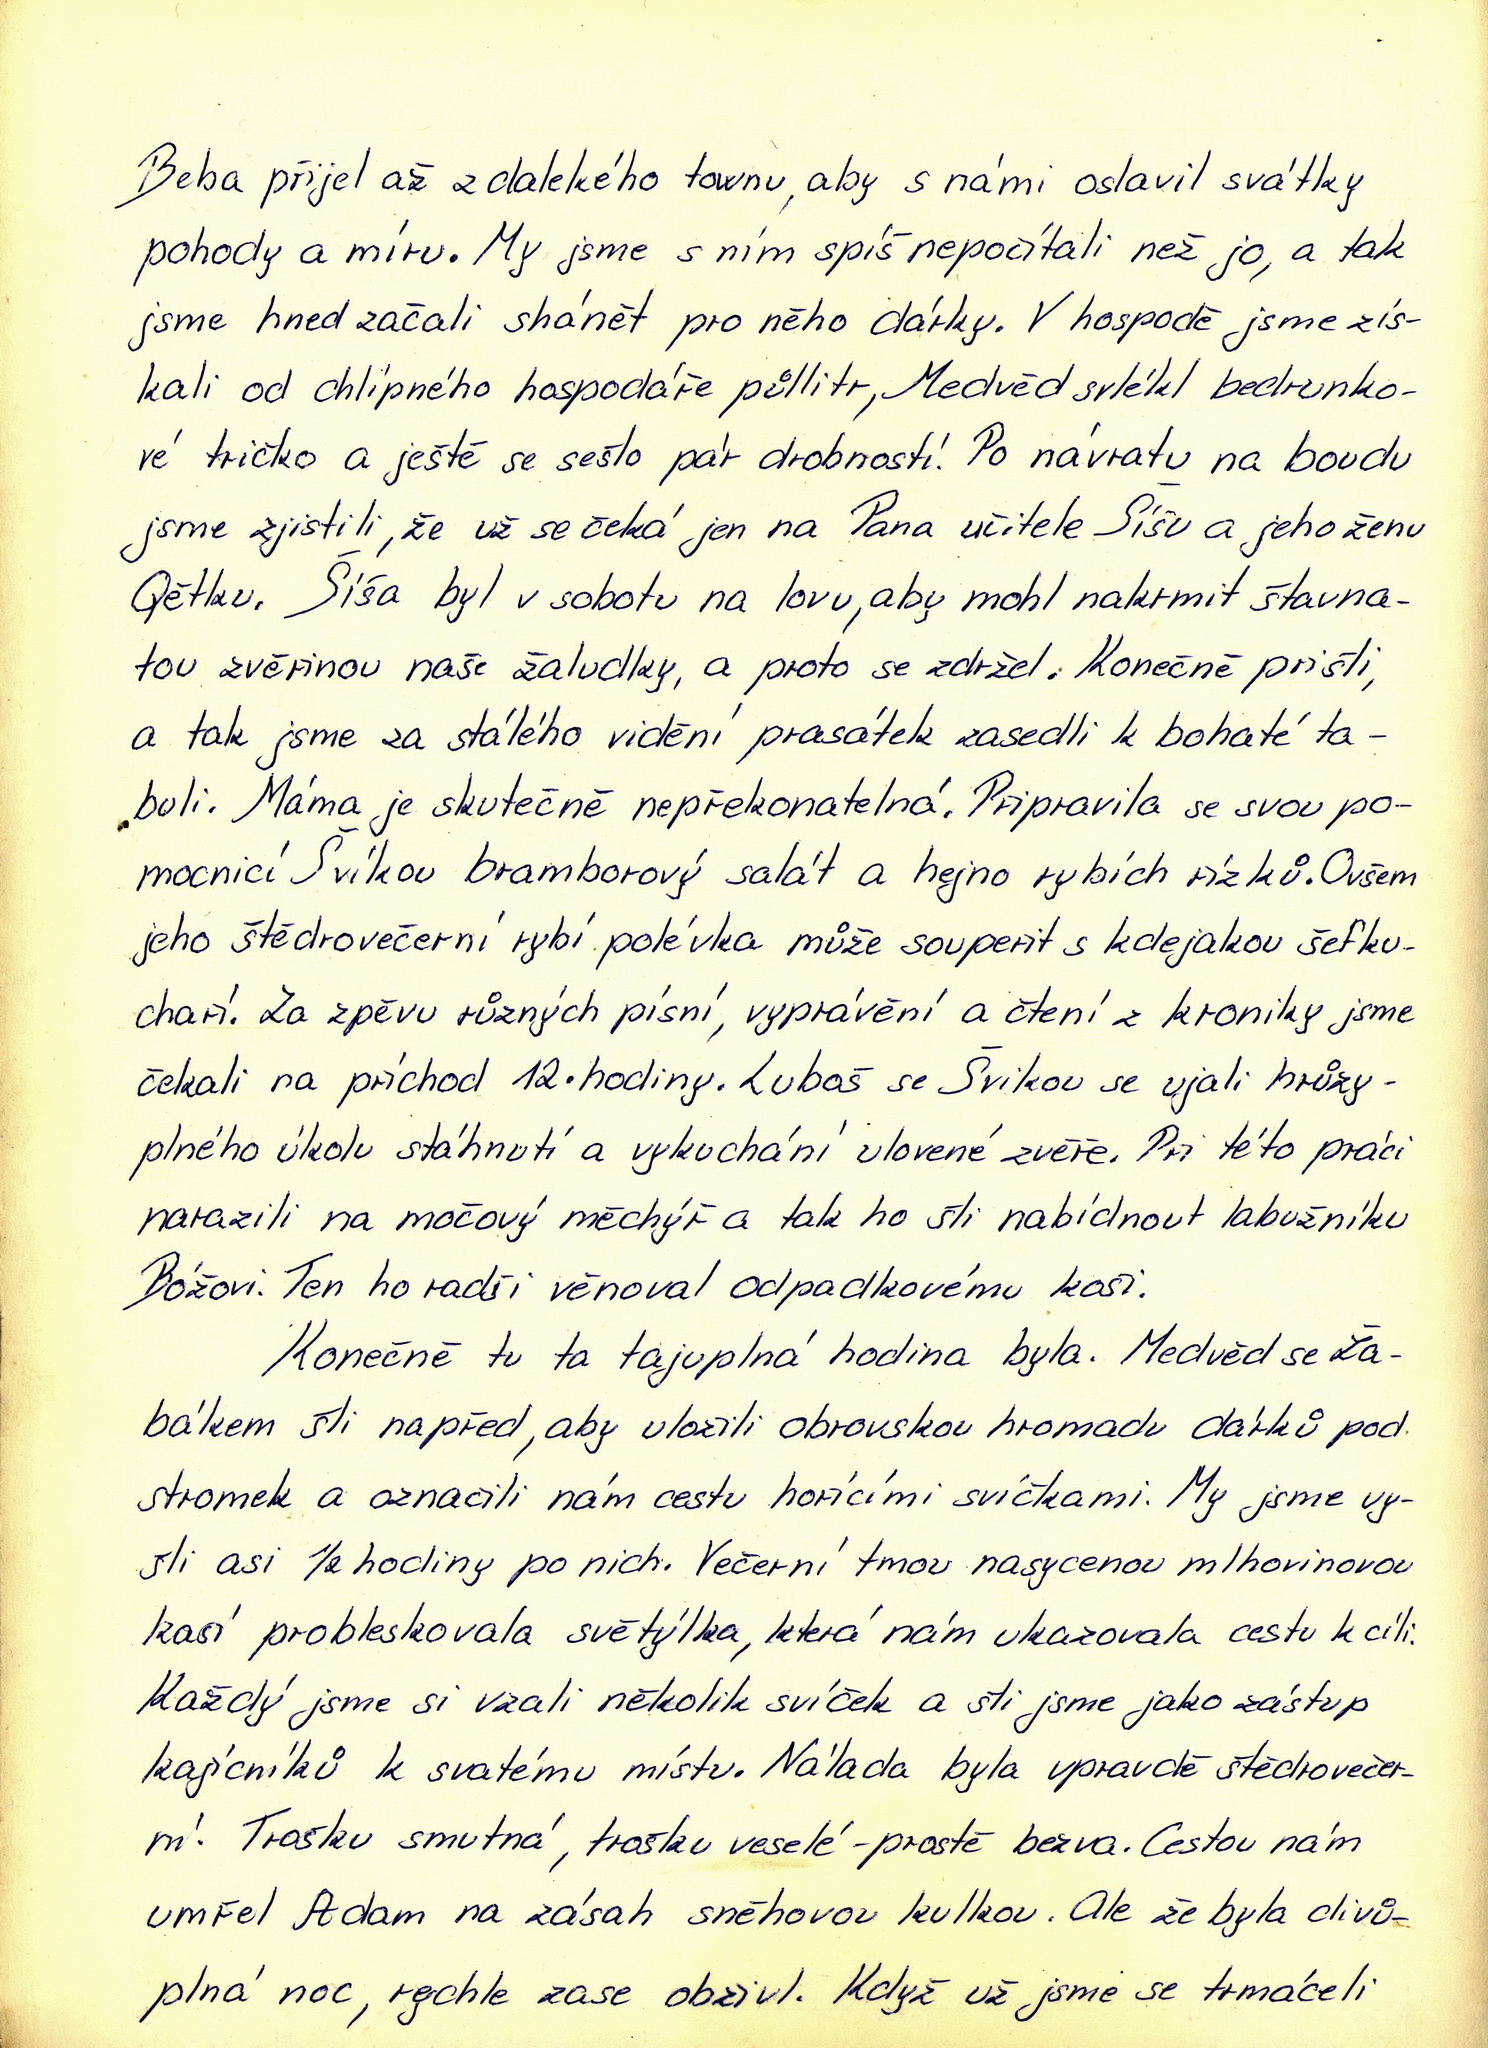 Beba přijel až z dalekého townu, aby s námi oslavil svátky
pohody a míru. My jsme s ním spíš nepočítali než jo, a tak
jsme hned začali shánět pro něho dárky. V hospodě jsme zís-
kali od chlípného hospodáře půllitr, Medvěd svlékl bedrunko-
vé tričko a ještě se sešlo pár drobností. Po návratu na boudu
jsme zjistili, že už se čeká jen na Pana učitele Šíšu a jeho ženu
Qětku. Šíša byl v sobotu na lovu, aby mohl nakrmit šťavna-
tou zvěřinou naše žaludky, a proto se zdržel. Konečně přišli,
a tak jsme za stálého vidění prasátek zasedli k bohaté ta-
buli. Máma je skutečně nepřekonatelná. Připravila se svou po-
mocnicí Švíkou bramborový salát a hejno rybích řízků. Ovšem
jeho štědrovečerní rybí polévka může soupeřit s kdejakou šéfku-
chaří. Za zpěvu různých písní, vyprávění a čtení z kroniky jsme
čekali na příchod 12. hodiny. Luboš se Švikou se ujali hrůzy-
plného úkolu stáhnutí a vykuchání ulovené zvěře. Při této práci
narazili na močový měchýř a tak ho šli nabídnout labužníku
Bóžovi. Ten ho radši věnoval odpadkovému koši.
Konečně tu ta tajuplná hodina byla. Medvěd se Ža-
bákem šli napřed, aby uložili obrovskou hromadu dárků pod
stromek a označili nám cestu hořícími svíčkami. My jsme vy-
šli asi 1/2 hodiny po nich. Večerní tmou nasycenou mlhovinovou
kaší probleskovala světýlka, která nám ukazovala cestu k cíli.
Každý jsme si vzali několik svíček a šli jsme jako zástup
kajícníků k svatému místu. Nálada byla vpravdě štědrovečer-
ní. Trošku smutná, trošku veselé - prostě bezva. Cestou nám
umřel Adam na zásah sněhovou kulkou. Ale že byla divů-
plná noc, rychle zase obživl. Když už jsme se trmáceli